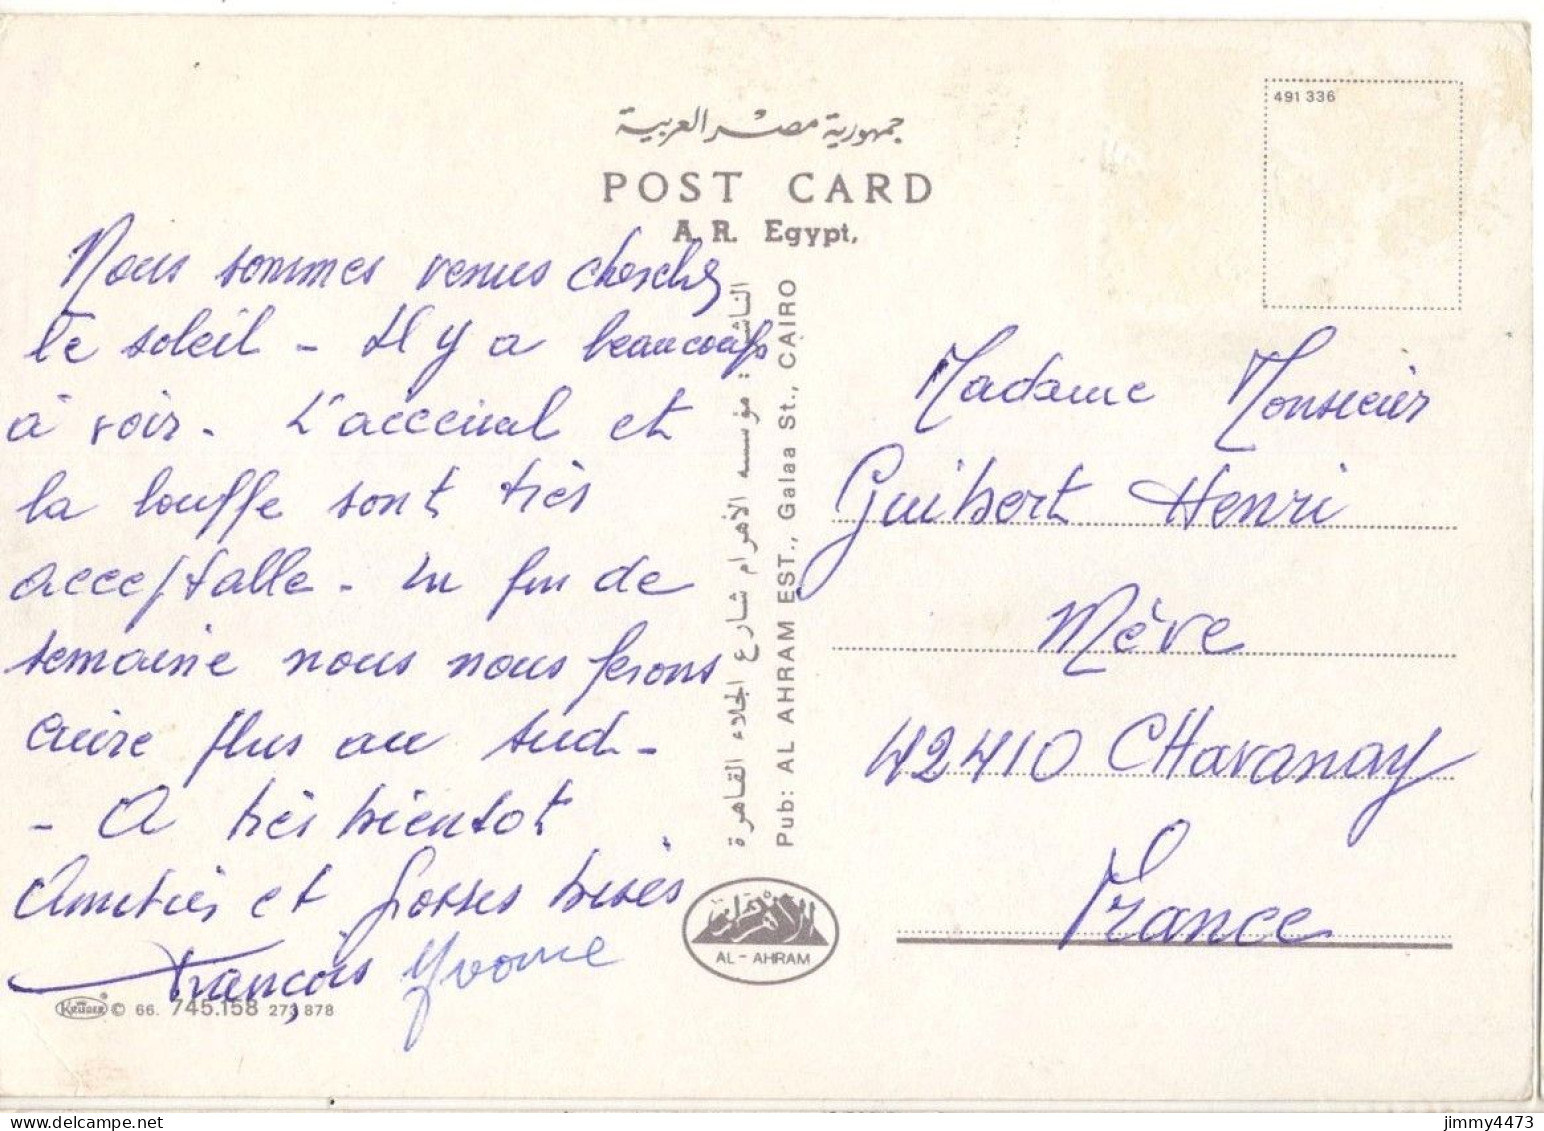 جمهورية مصر العربية
POST CARD
A. R. Egypt,
491 336
Nous sommes venus chercher
le soleil - Il y a beaucoup
à voir. L'acceuil et
la bouffe sont très
acceptable - En fin de
semaine nous nous ferons
cuire plus au sud -
- A très bientot
Amitiés et grosses bises
François Yvonne
الناشر: مؤسسه الأهرام شارع الجلاء القاهرة
Pub: AL AHRAM EST., Galaa St., CAIRO
Madame Monsieur
Guibert Henri
Mève
42410 CHavanay
France
AL-AHRAM
KRÜGER © 66. 745.158 273 878
jimmy4473